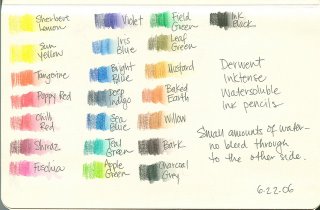 Sherbet
Lemon
Sun
Yellow
Tangerine
Poppy Red
Chilli
Red
Shiraz
Fuschia
Violet
Iris
Blue
Bright
Blue
Deep
Indigo
Sea
Blue
Teal
Green
Apple
Green
Field
Green
Leaf
Green
Mustard
Baked
Earth
Willow
Bark
Charcoal
Grey
Ink
Black
Derwent
Inktense
Watersoluble
Ink pencils
Small amounts of water—
no bleed through
to the other side.
6-22-06